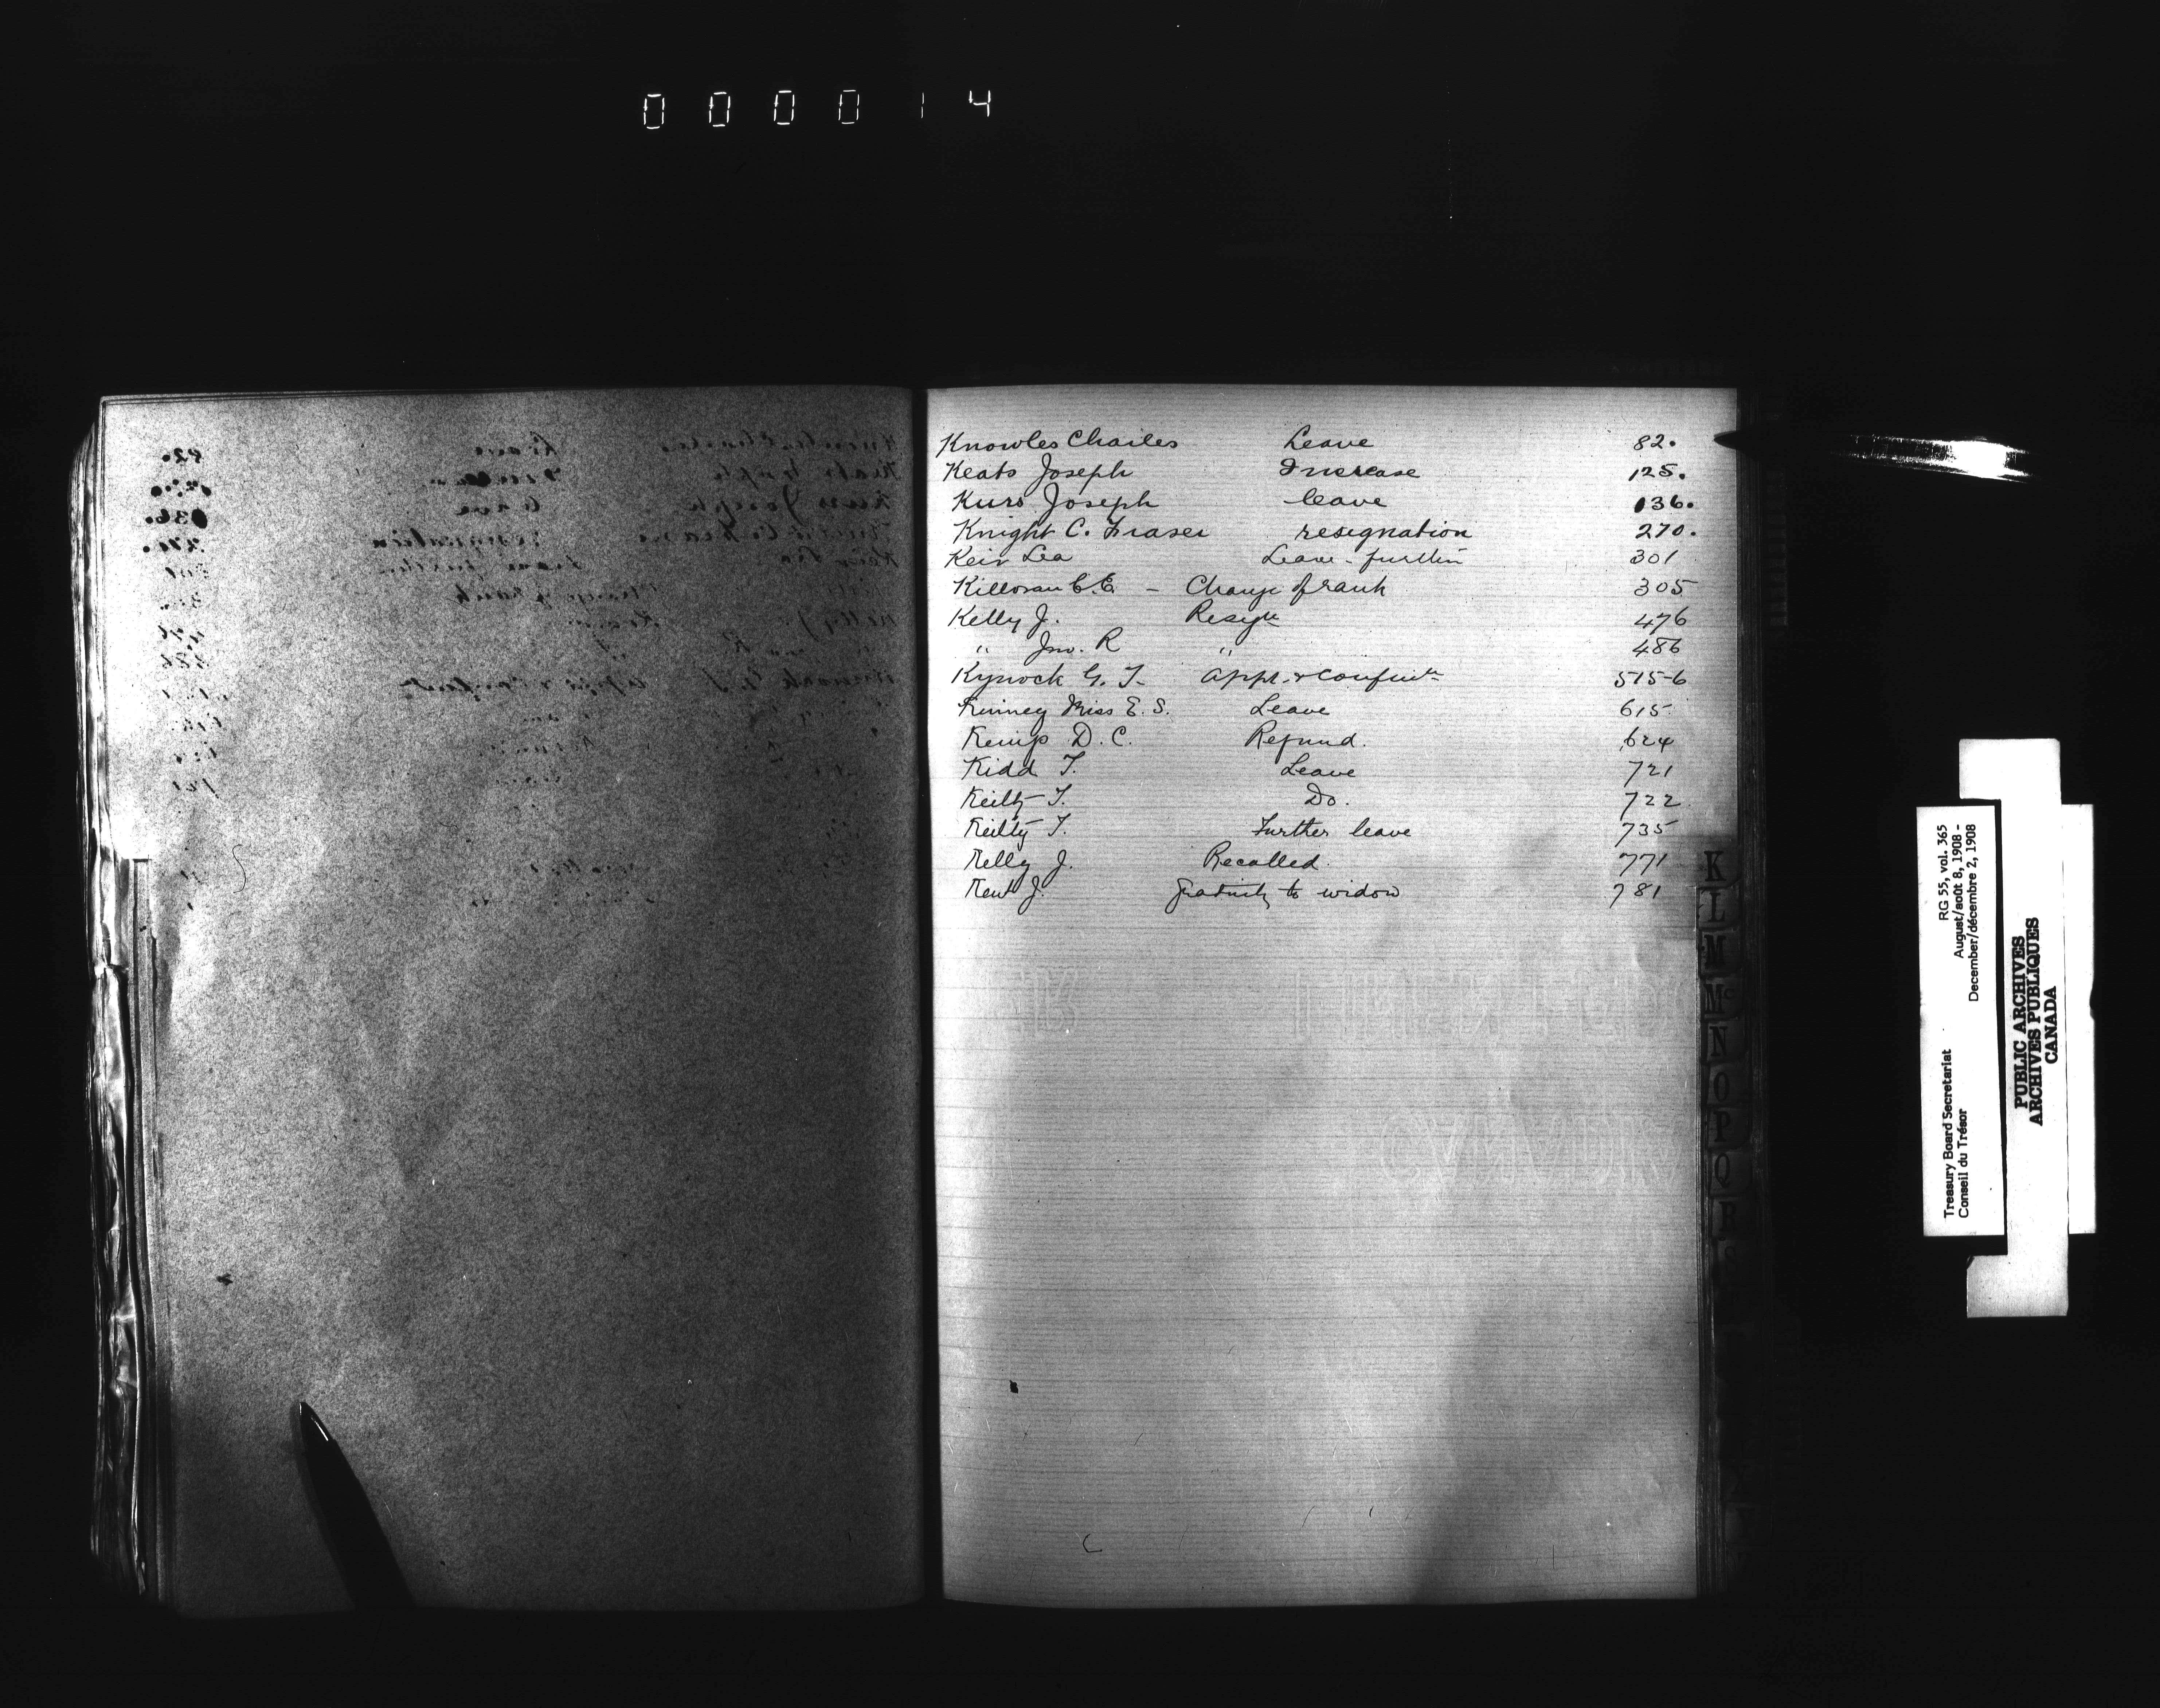 000014
Knowles Charles Leave 82.
Keats Joseph Increase 125.
Kurs Joseph leave 136.
Knight C. Fraser resignation 270.
Keir Lea Leave - further 301
Killoran C.E. - Change of rank 305
Kelly J. Resign 476
" Jno. R " 486
Kynock G. T. Appt. & Confirm 515-6
Kinney Miss E. S. Leave 615
Kemp D. C. Refund. 624
Kidd T. Leave 721
Keilty T. Do. 722
Keilty T. Further leave 735
Kelly J. Recalled 771
Kent J. Gratuity to widow 781
K
L
M
Mc
N
O
P
Q
R
S
Treasury Board Secretariat RG 55, vol. 365
Conseil du Trésor August/août 8, 1908 -
December/décembre 2, 1908
PUBLIC ARCHIVES
ARCHIVES PUBLIQUES
CANADA